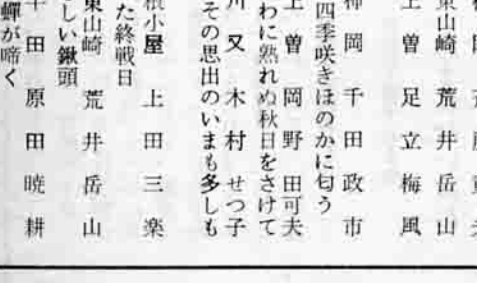 東山崎 荒井岳山
上曽 足立梅風
柿岡 千田政市
四季咲きほのかに匂う
上曽 岡野田可夫
わに熟れぬ秋日をさけて
川又 木村せつ子
その思出のいまも多しも
根小屋 上田三楽
た終戦日
東山崎 荒井岳山
しい鍬頭
田 原田暁耕
蟬が啼く